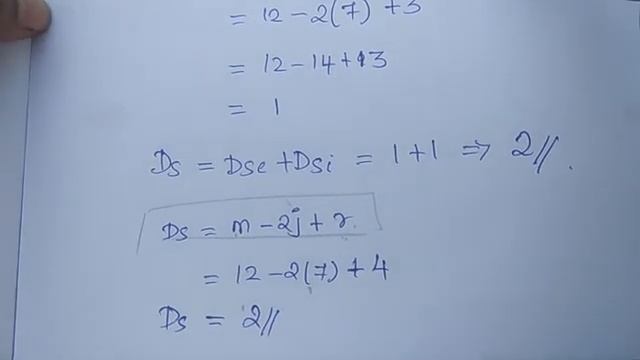 = 12 - 2(7) + 3
= 12 - 14 + 3
= 1
Ds = Dse + Dsi = 1 + 1 ⇒ 2//.
Ds = m - 2j + r.
= 12 - 2(7) + 4
Ds = 2//